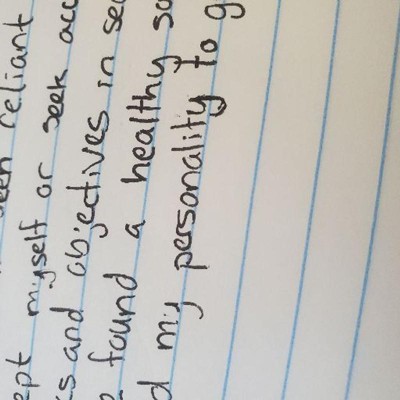 reliant
myself or seek
and objectives in
found a healthy
my personality to